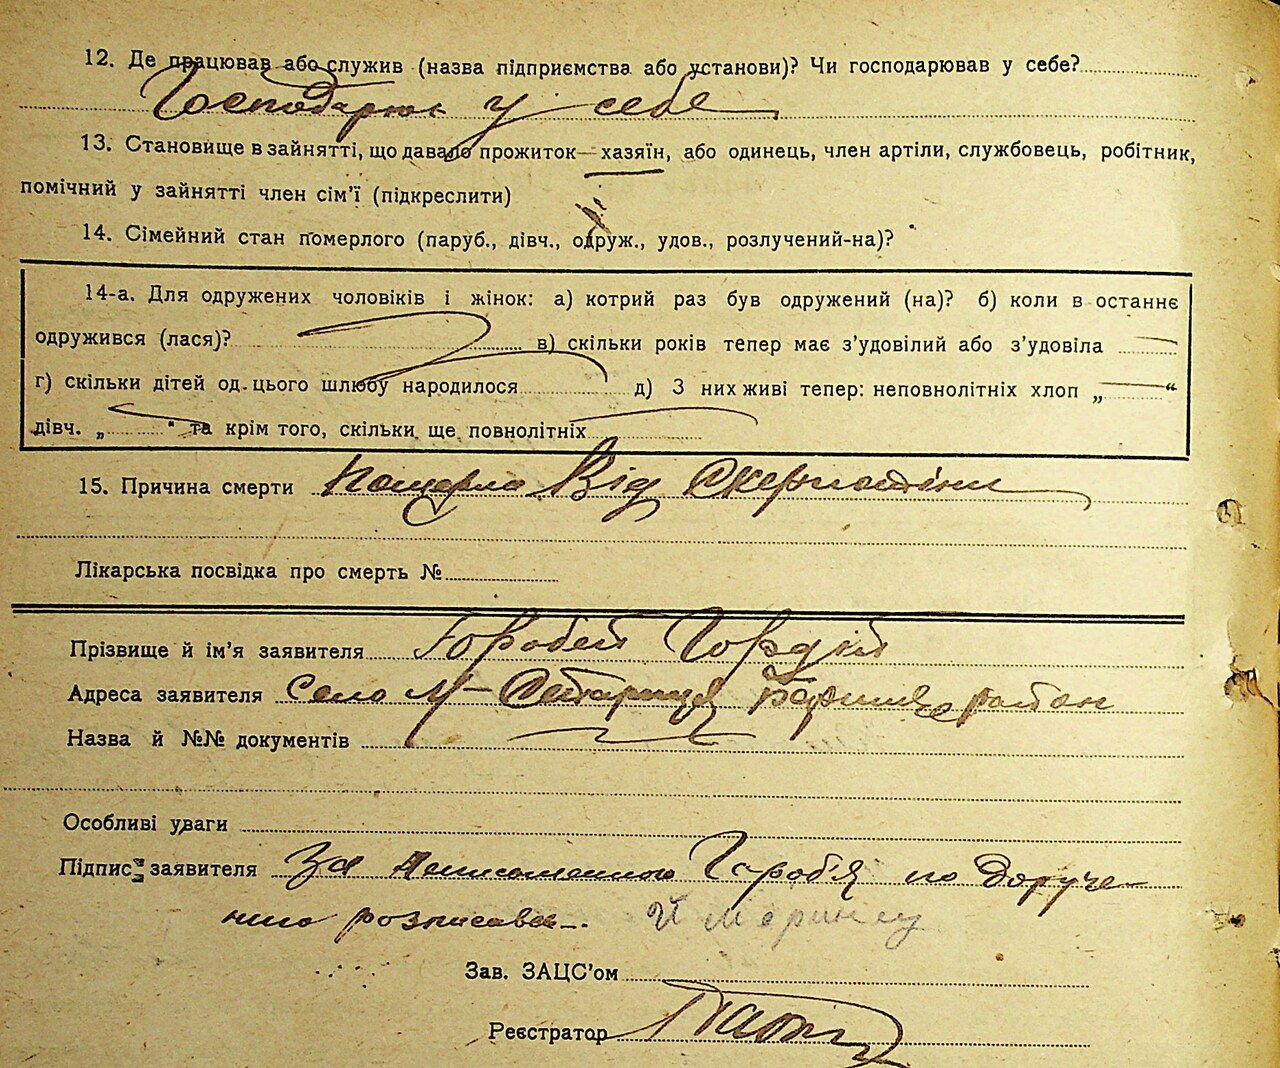 12. Де працював або служив (назва підприємства або установи)? Чи господарював у себе?
Господарює у себе
13. Становище в зайнятті, що давало прожиток—хазяїн, або одинець, член артілі, службовець, робітник,
помічний у зайнятті член сім'ї (підкреслити)
14. Сімейний стан померлого (паруб., дівч., одруж., удов., розлучений-на)?
14-а. Для одружених чоловіків і жінок: а) котрий раз був одружений (на)? б) коли в останнє
одружився (лася)? в) скільки років тепер має з'удовілий або з'удовіла
г) скільки дітей од цього шлюбу народилося д) З них живі тепер: неповнолітніх хлоп „ “
дівч. „ “ та крім того, скільки ще повнолітніх
15. Причина смерти Від
Лікарська посвідка про смерть №
Прізвище й ім'я заявителя Горобей Гордій
Адреса заявителя Село М-Старица район
Назва й №№ документів
Особливі уваги
Підпис заявителя За неписьменного Горобія по доруче-
нню розписався
Зав. ЗАЦС'ом
Реєстратор